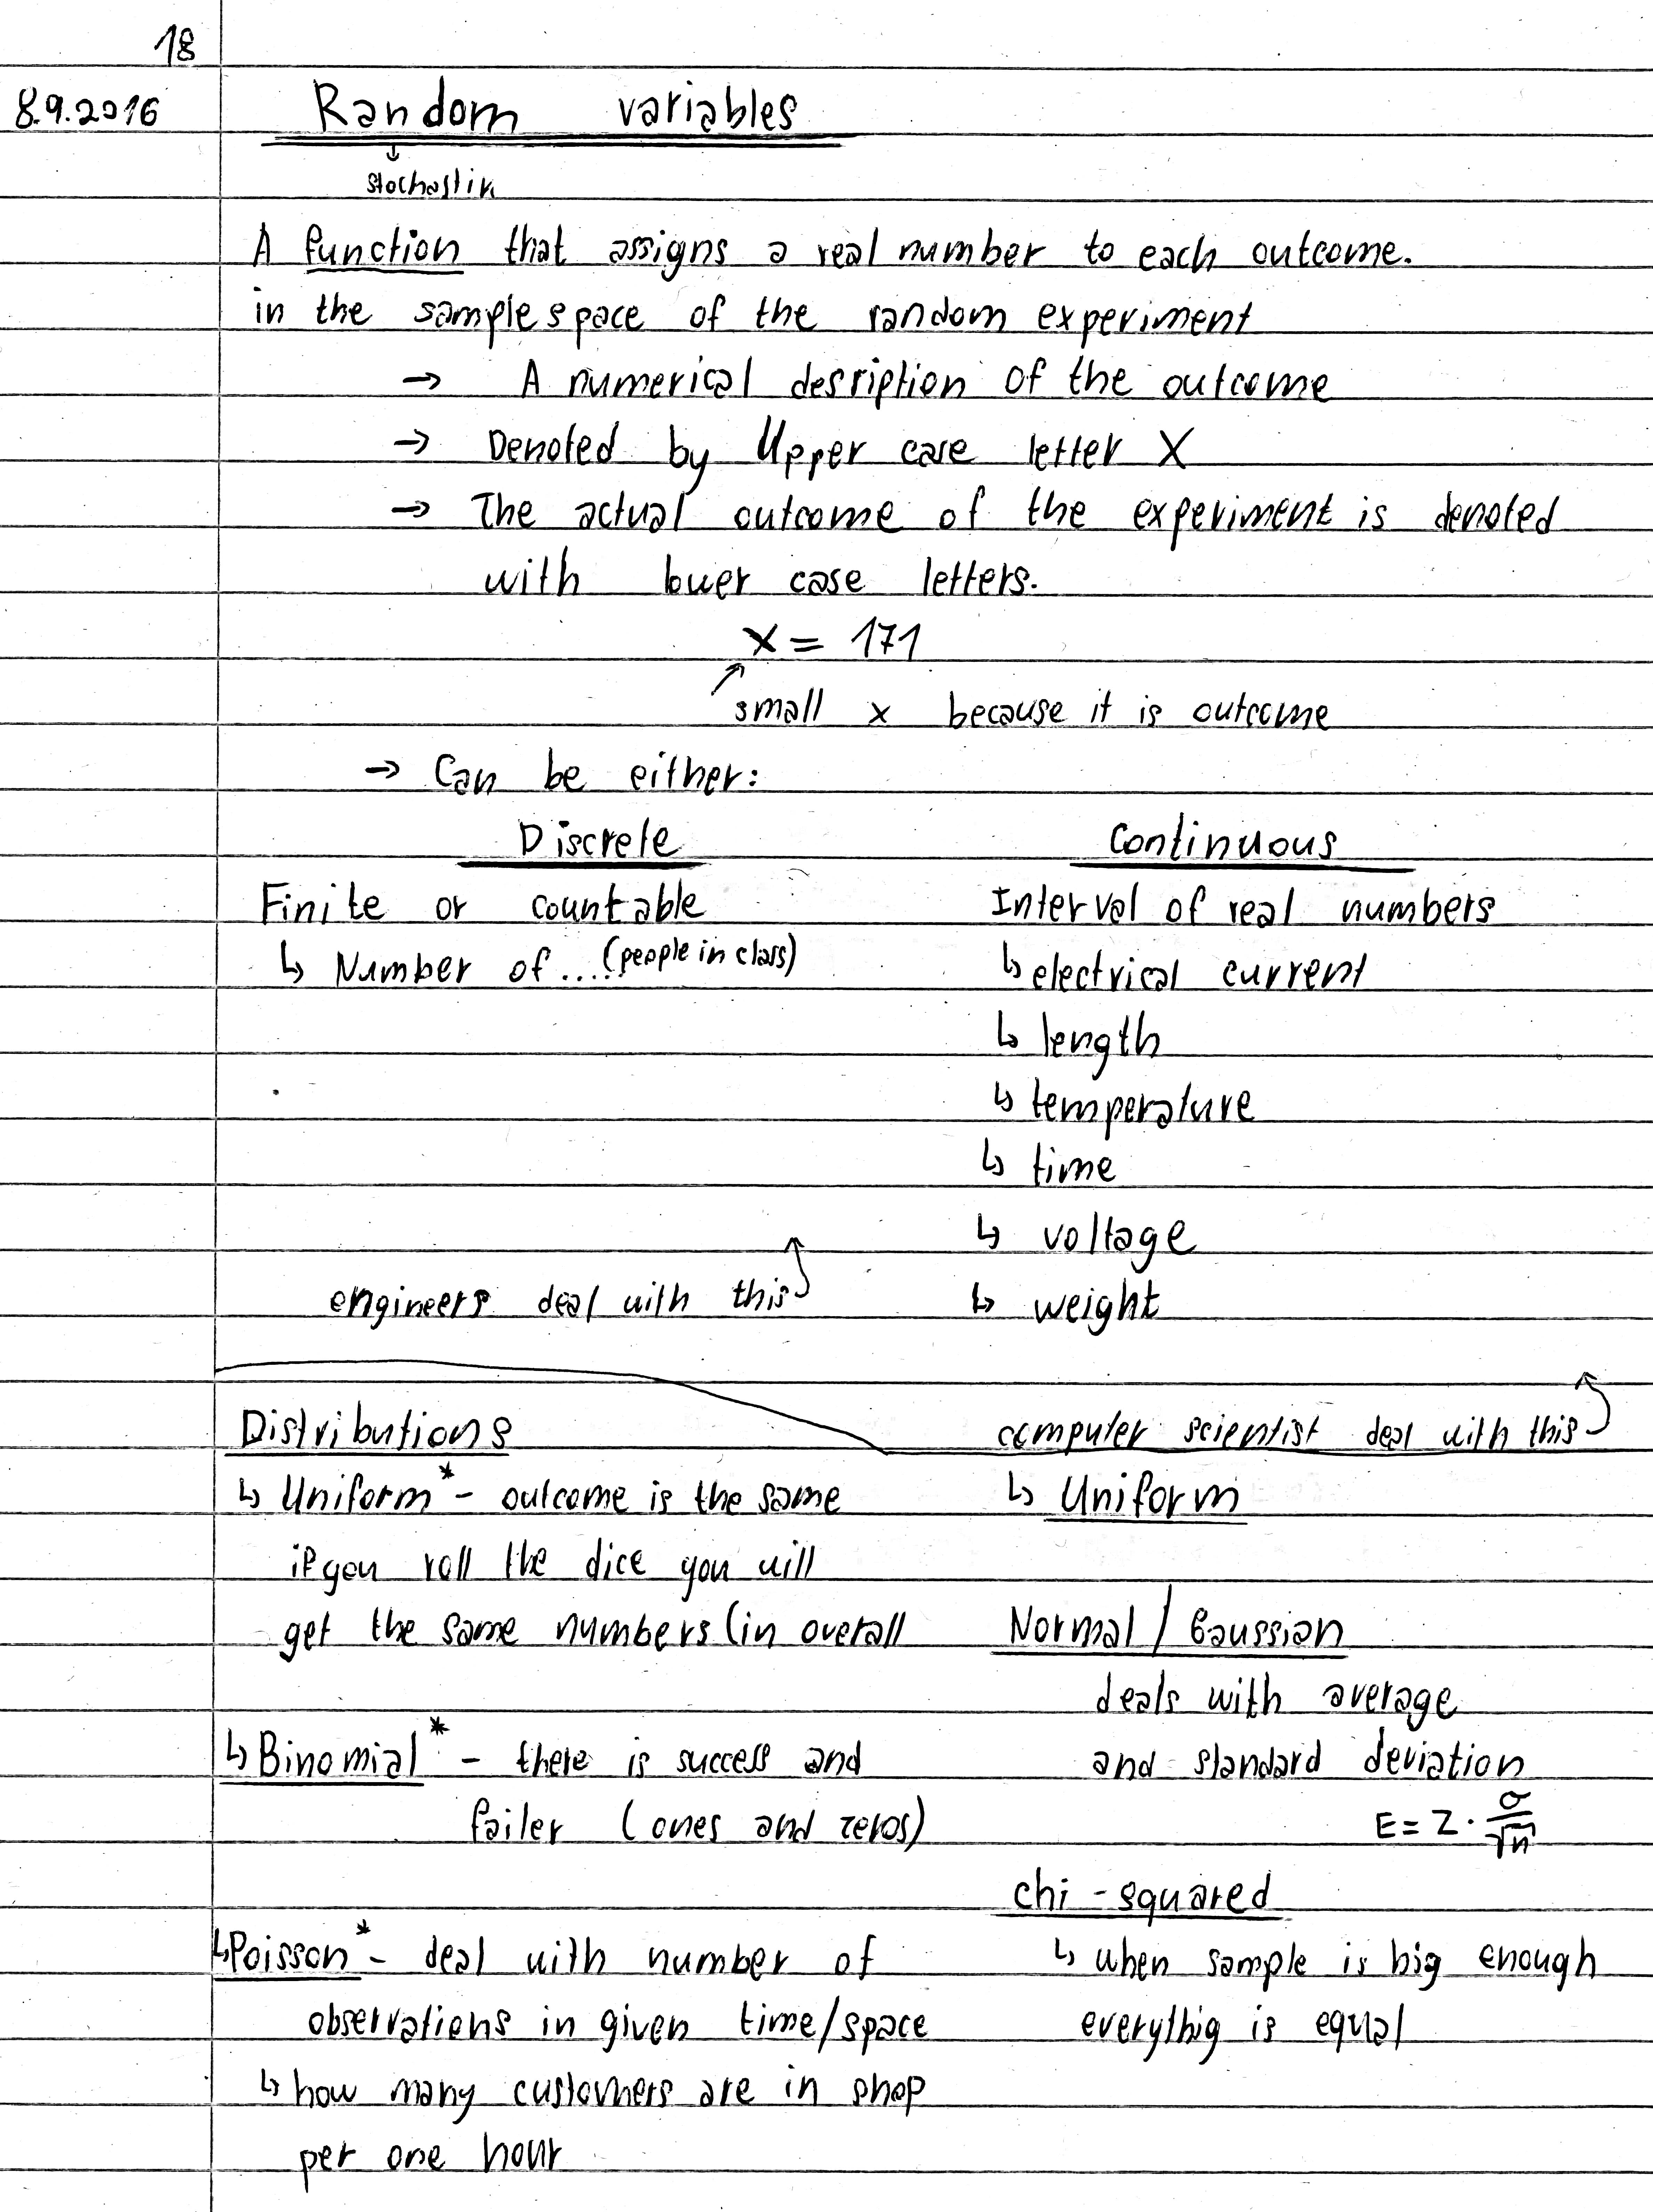 18
8.9.2016 Random variables
↓
stochastik
A function that assigns a real number to each outcome.
in the sample space of the random experiment
→ A numerical desription of the outcome
→ Denoted by Upper case letter X
→ The actual outcome of the experiment is denoted
with lower case letters.
x = 171
↗ small x because it is outcome
→ Can be either:
Discrete
Finite or countable
↳ Number of .... (people in class)
engineers deal with this
Continuous
Interval of real numbers
↳ electrical current
↳ length
↳ temperature
↳ time
↳ voltage
↳ weight
computer scientist deal with this
Distributions
↳ Uniform* - outcome is the same
if you roll the dice you will
get the same numbers (in overall
↳ Binomial* - there is success and
failer (ones and zeros)
↳ Poisson* - deal with number of
observations in given time/space
↳ how many customers are in shop
per one hour
↳ Uniform
Normal / Gaussian
deals with average
and standard deviation
E = Z · σ/√n
chi-squared
↳ when sample is big enough
everythig is equal